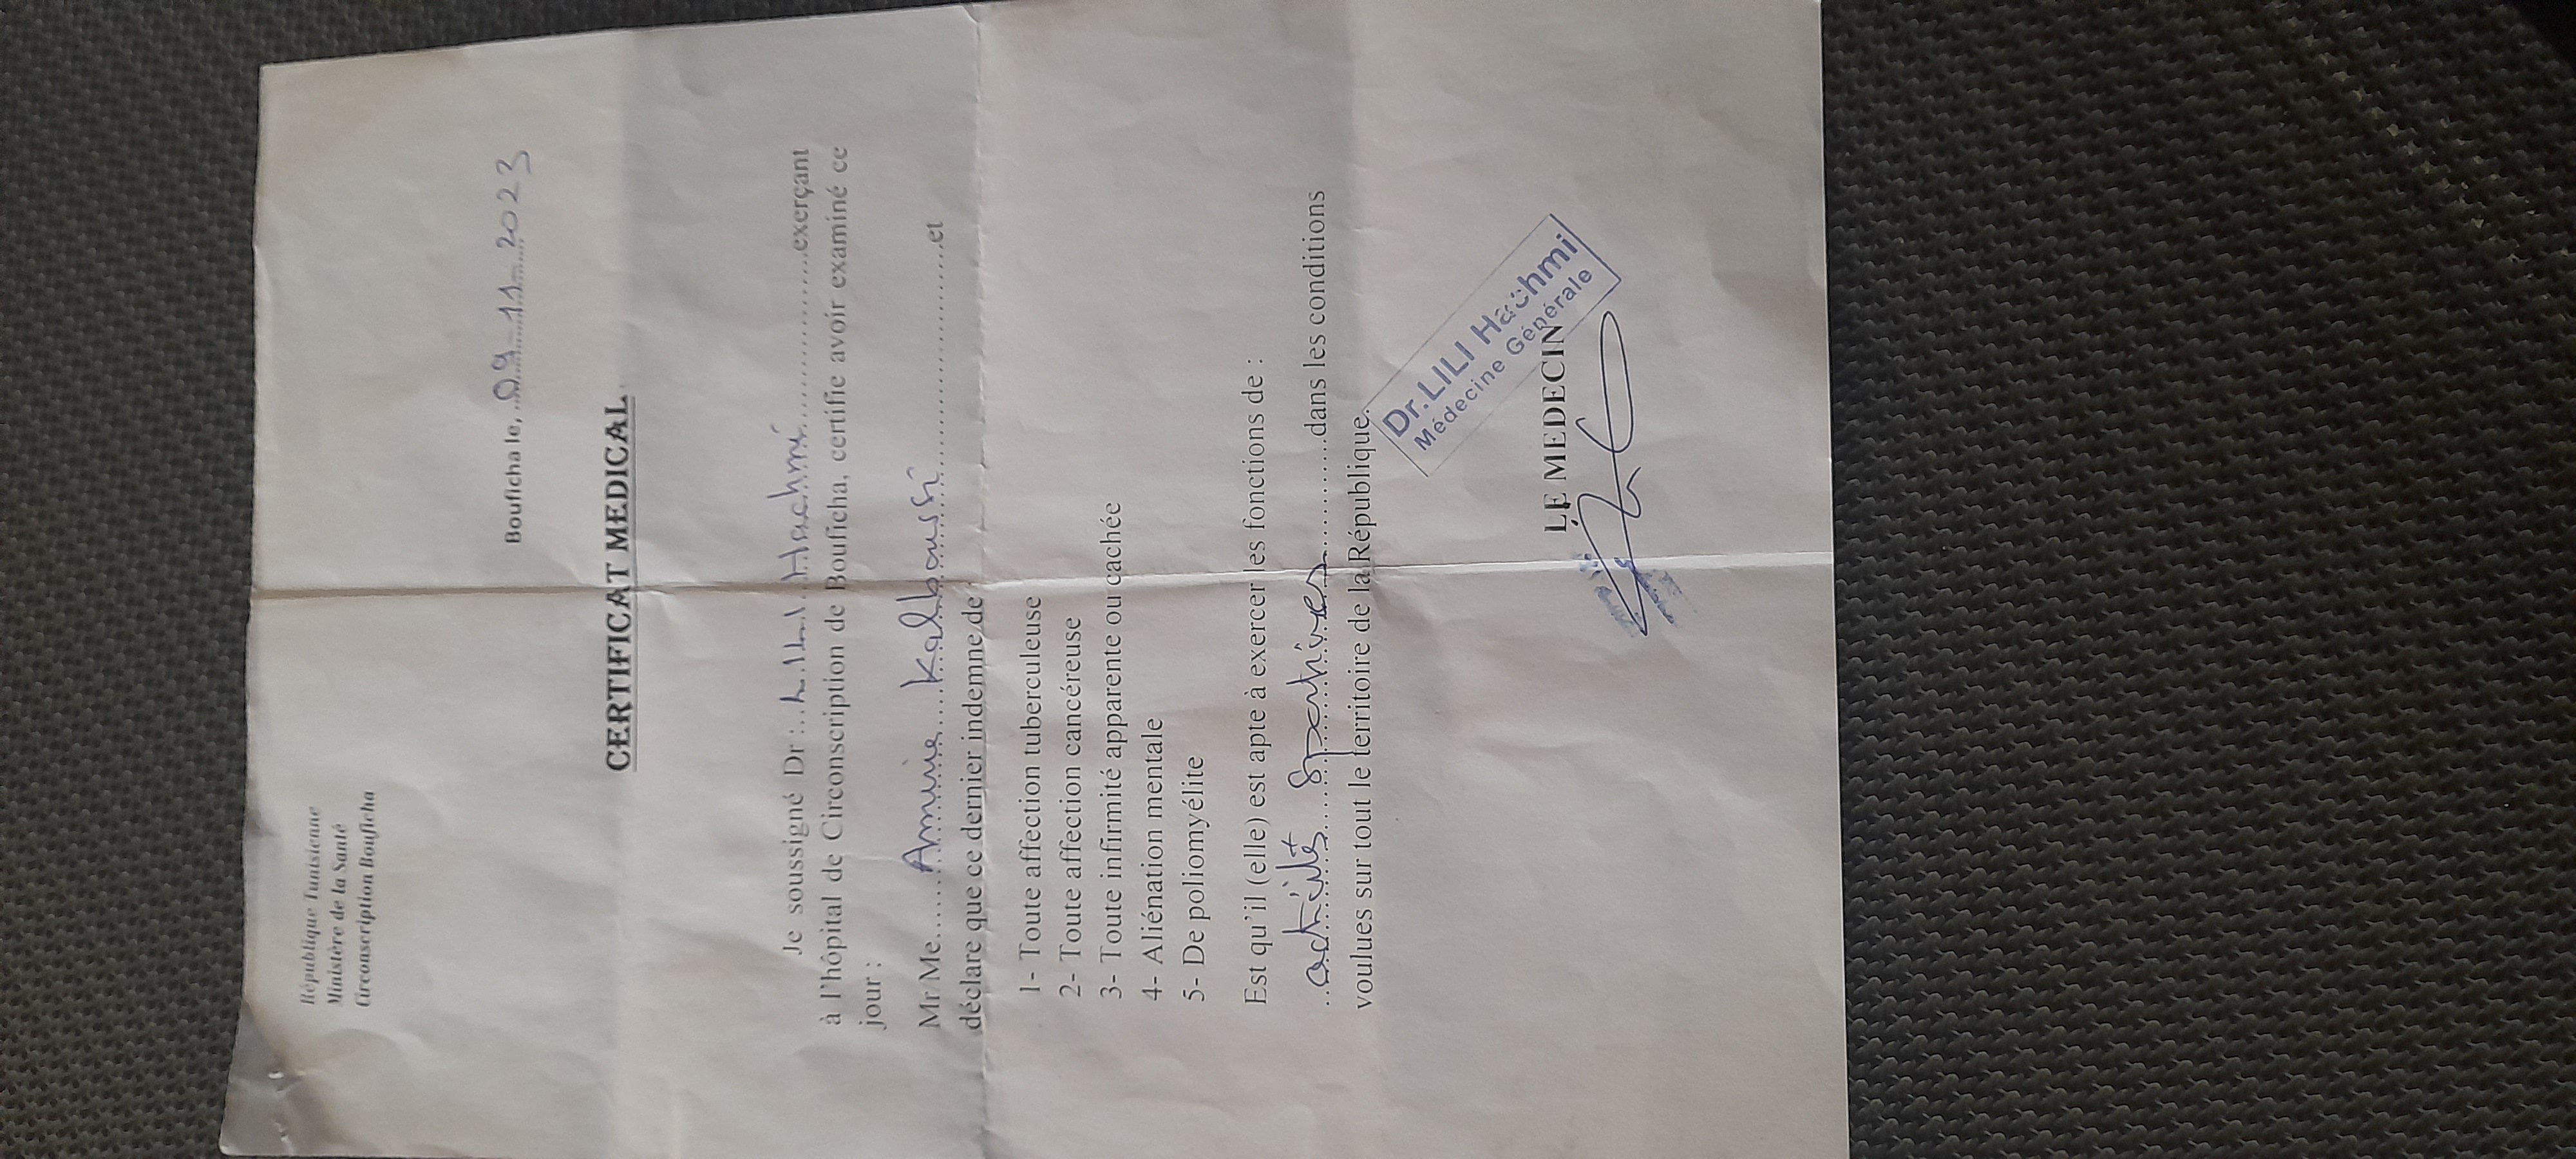 République Tunisienne
Ministère de la Santé
Circonscription Bouficha
Bouficha le, 09-11-2023
CERTIFICAT MEDICAL
Je soussigné Dr : Lili Hachmi exerçant
à l'hôpital de Circonscription de Bouficha, certifie avoir examiné ce
jour :
Mr Me Amine Kalboussi et
déclare que ce dernier indemne de
1- Toute affection tuberculeuse
2- Toute affection cancéreuse
3- Toute infirmité apparente ou cachée
4- Aliénation mentale
5- De poliomyélite
Est qu'il (elle) est apte à exercer les fonctions de :
activité sportives dans les conditions
voulues sur tout le territoire de la République.
Dr. LILI Hachmi
Médecine Générale
LE MEDECIN